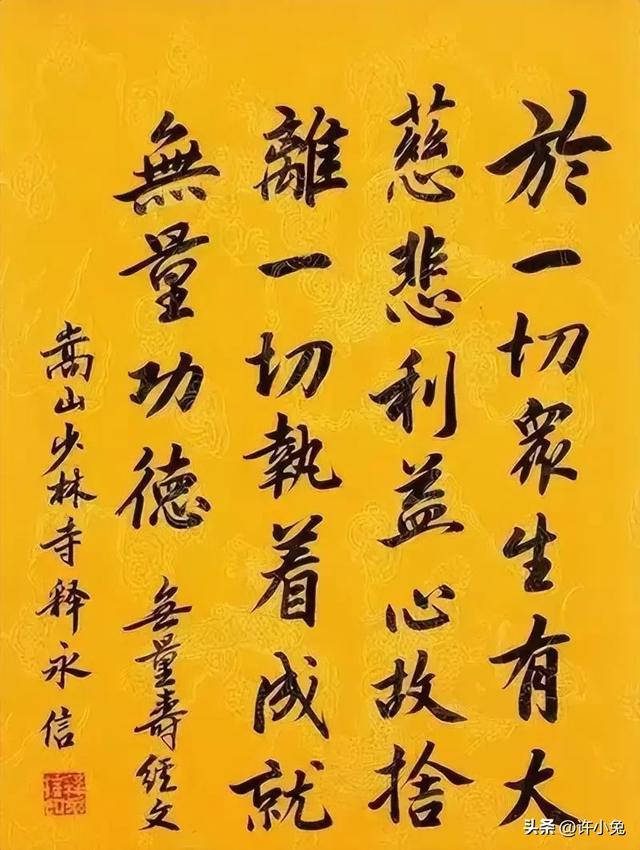 於一切眾生有大
慈悲利益心故捨
離一切執着成就
無量功德
無量壽經文
嵩山少林寺释永信
头条 @许小兔